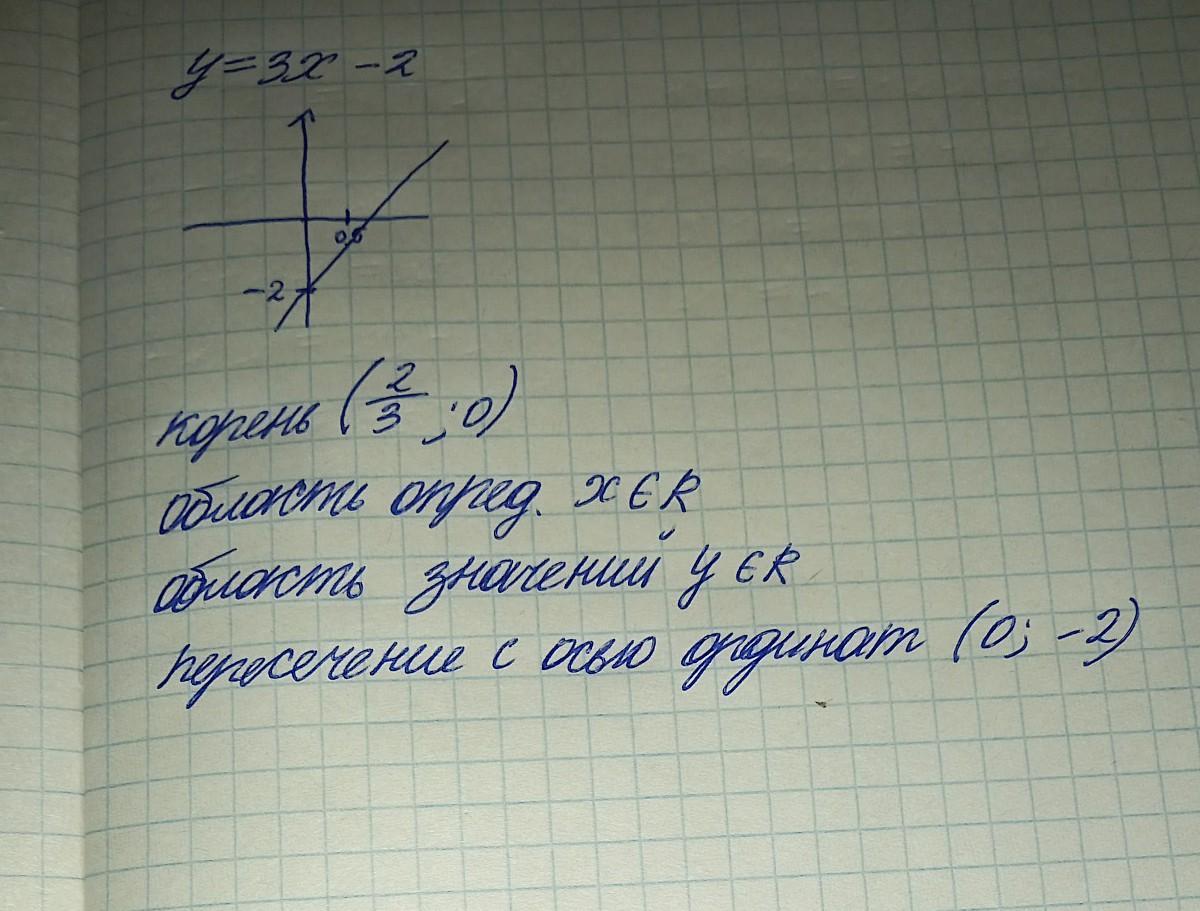 y=3x-2
0,6
-2
корень (2/3 ; 0)
область опред. x∈R
область значений y∈R
пересечение с осью ординат (0; -2)